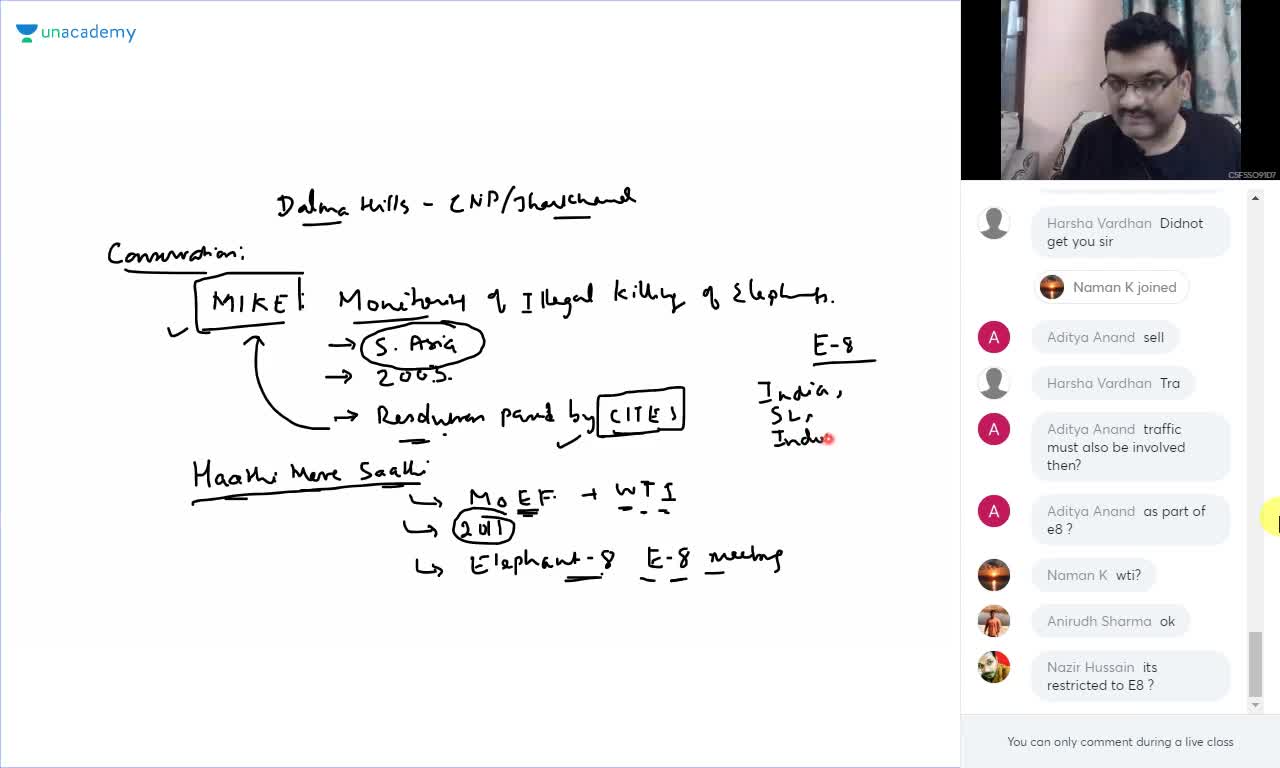 unacademy
Dalma Hills - CNP/Jharkhand
Conservation:
MIKE: Monitoring of Illegal killing of Elephants.
→ S. Asia
→ 2003.
→ Resolution passed by CITES
E-8
India,
SL,
Indo
Haathi Mere Saathi
MoEF. + WTI
2011
Elephant-8 E-8 meeting
CSFSSO91D7
Harsha Vardhan Didnot
get you sir
Naman K joined
Aditya Anand sell
Harsha Vardhan Tra
Aditya Anand traffic
must also be involved
then?
Aditya Anand as part of
e8 ?
Naman K wti?
Anirudh Sharma ok
Nazir Hussain its
restricted to E8 ?
You can only comment during a live class
A
A
A